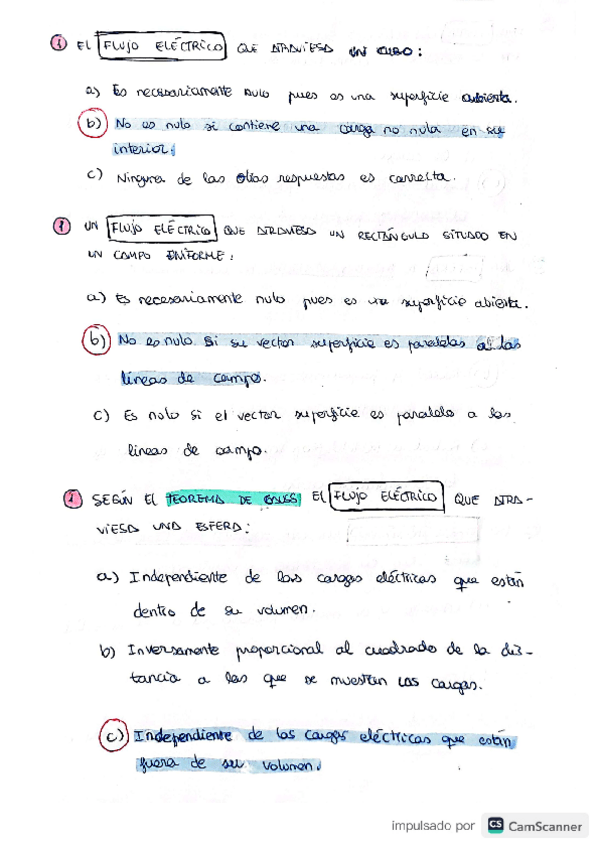 1 EL FLUJO ELÉCTRICO QUE ATRAVIESA UN CUBO:
a) Es necesariamente nulo pues es una superficie abierta.
b) No es nulo si contiene una carga no nula en su
interior.
c) Ninguna de las otras respuestas es correcta.
1 UN FLUJO ELÉCTRICO QUE ATRAVIESA UN RECTÁNGULO SITUADO EN
UN CAMPO UNIFORME:
a) Es necesariamente nulo pues es una superficie abierta.
b) No es nulo si su vector superficie es paralelas a las
líneas de campo.
c) Es nulo si el vector superficie es paralelo a las
líneas de campo.
1 SEGÚN EL TEOREMA DE GAUSS EL FLUJO ELÉCTRICO QUE ATRA-
VIESA UNA ESFERA:
a) Independiente de las cargas eléctricas que están
dentro de su volumen.
b) Inversamente proporcional al cuadrado de la dis-
tancia a las que se muestran las cargas.
c) Independiente de las cargas eléctricas que están
fuera de su volumen.
impulsado por CS CamScanner